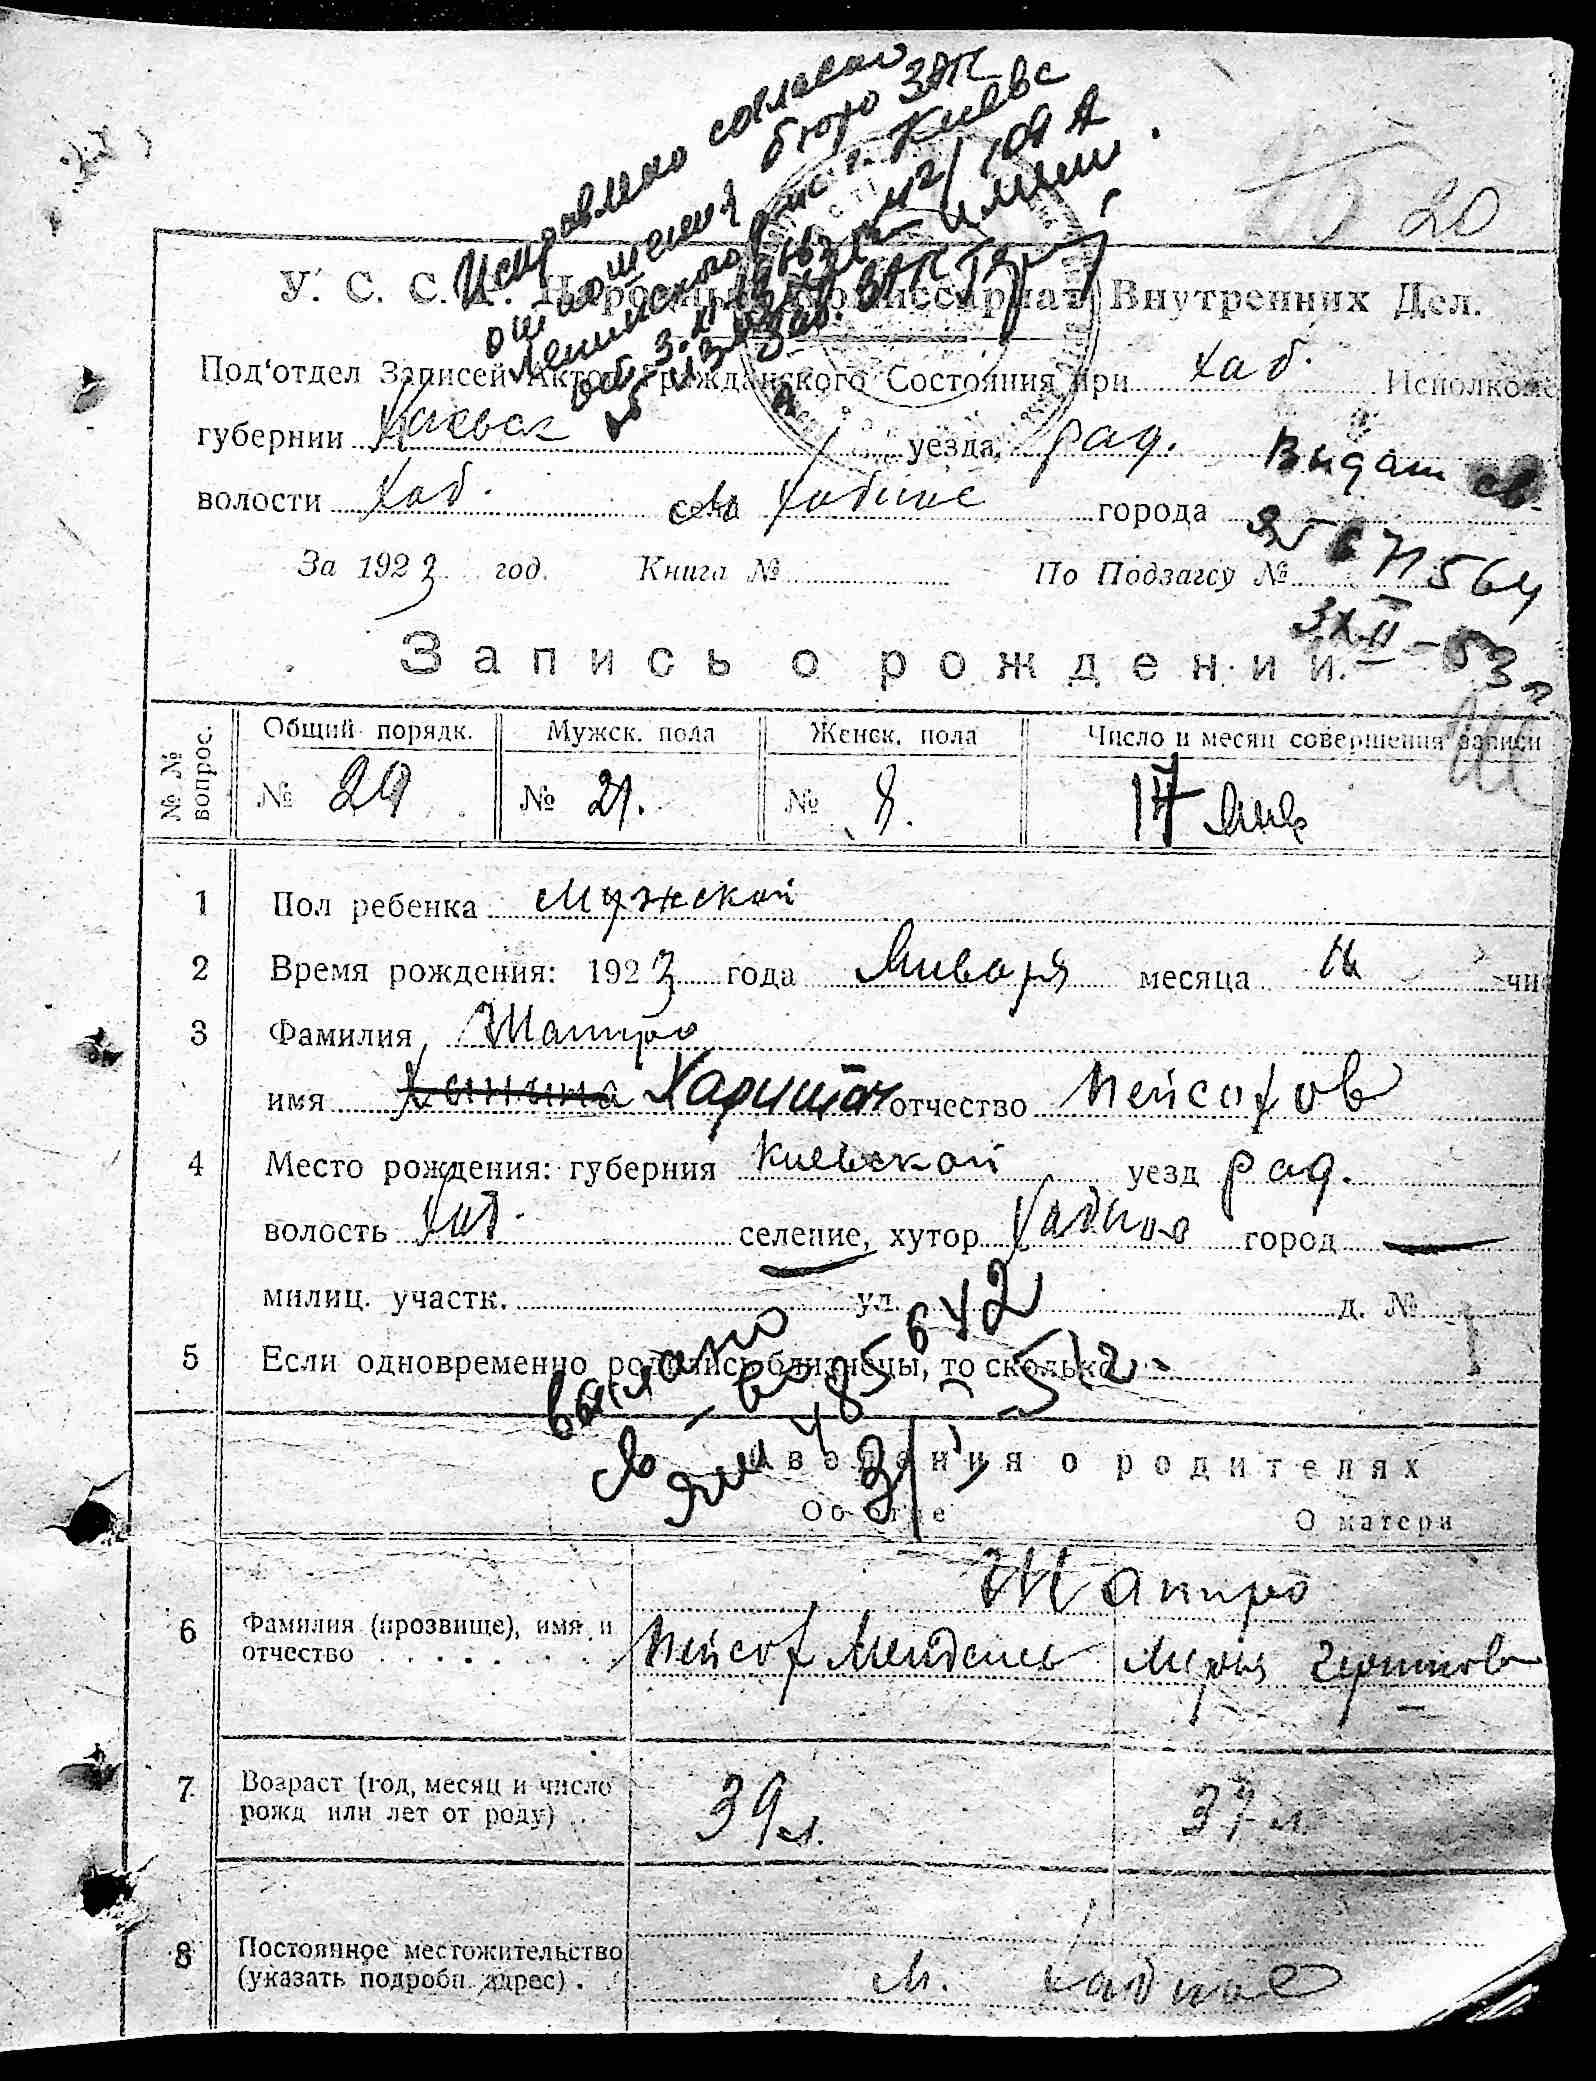 20
Исправлено согласно
отношения бюро ЗАГС
Ленинского г. Киева
У. С. С. Р. Народный Комиссариат Внутренних Дел.
Под'отдел Записей Актов Гражданского Состояния при Хаб. Исполкоме
губернии Киевск уезда рад.
волости Хаб. села Хабное города
Выдан св.
За 1923 год. Книга № По Подзагсу №
3 XII-53 г
Запись о рождении.
№ № вопрос. Общий порядк. Мужск. пола Женск. пола Число и месяц совершения записи
№ 29 № 21. № 8. 17 Янв
1 Пол ребенка Мужской
2 Время рождения: 1923 года Января месяца чис
3 Фамилия Шапиро
имя Харитон отчество Пейсахов
4 Место рождения: губерния Киевской уезд рад.
волость Хаб. селение, хутор Хабное город —
милиц. участк. ул. д. №
5 Если одновременно родились близнецы, то сколько
выдано
св-во
485642
Сведения о родителях
Об отце О матери
Шапиро
6 Фамилия (прозвище), имя и отчество Пейсах Мендель
7 Возраст (год, месяц и число рожд или лет от роду) 39 л. 37 л
8 Постоянное местожительство (указать подробн. адрес) м. Хабное